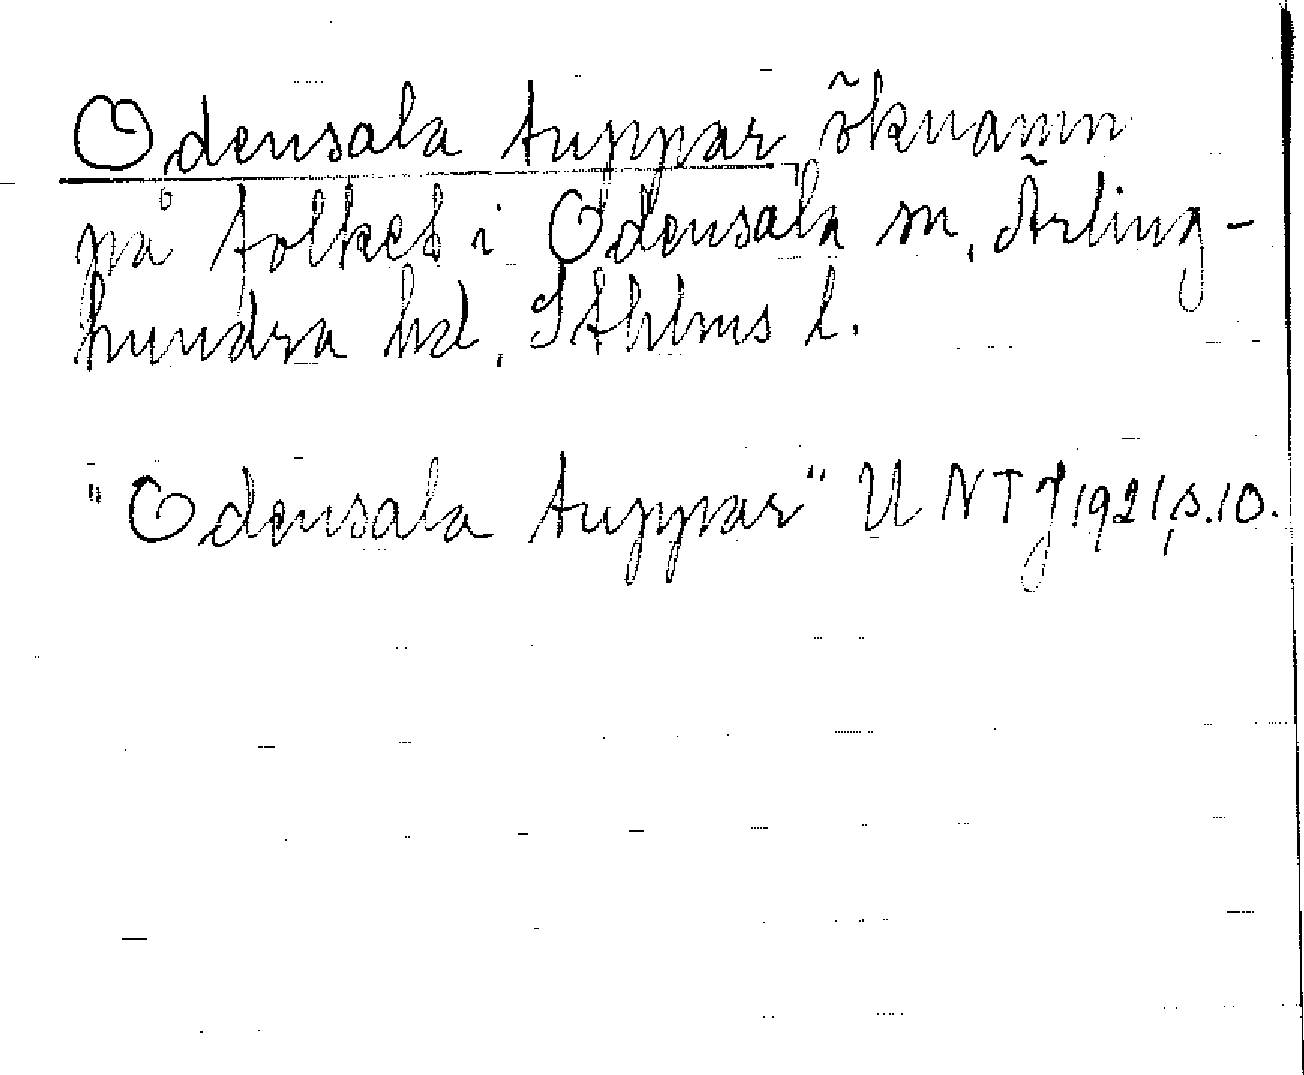 Odensala tuppar öknamn
på folket i Odensala sn, Ärling-
hundra hd, Sthlms l.
"Odensala tuppar" UNTJ 1921, s. 10.